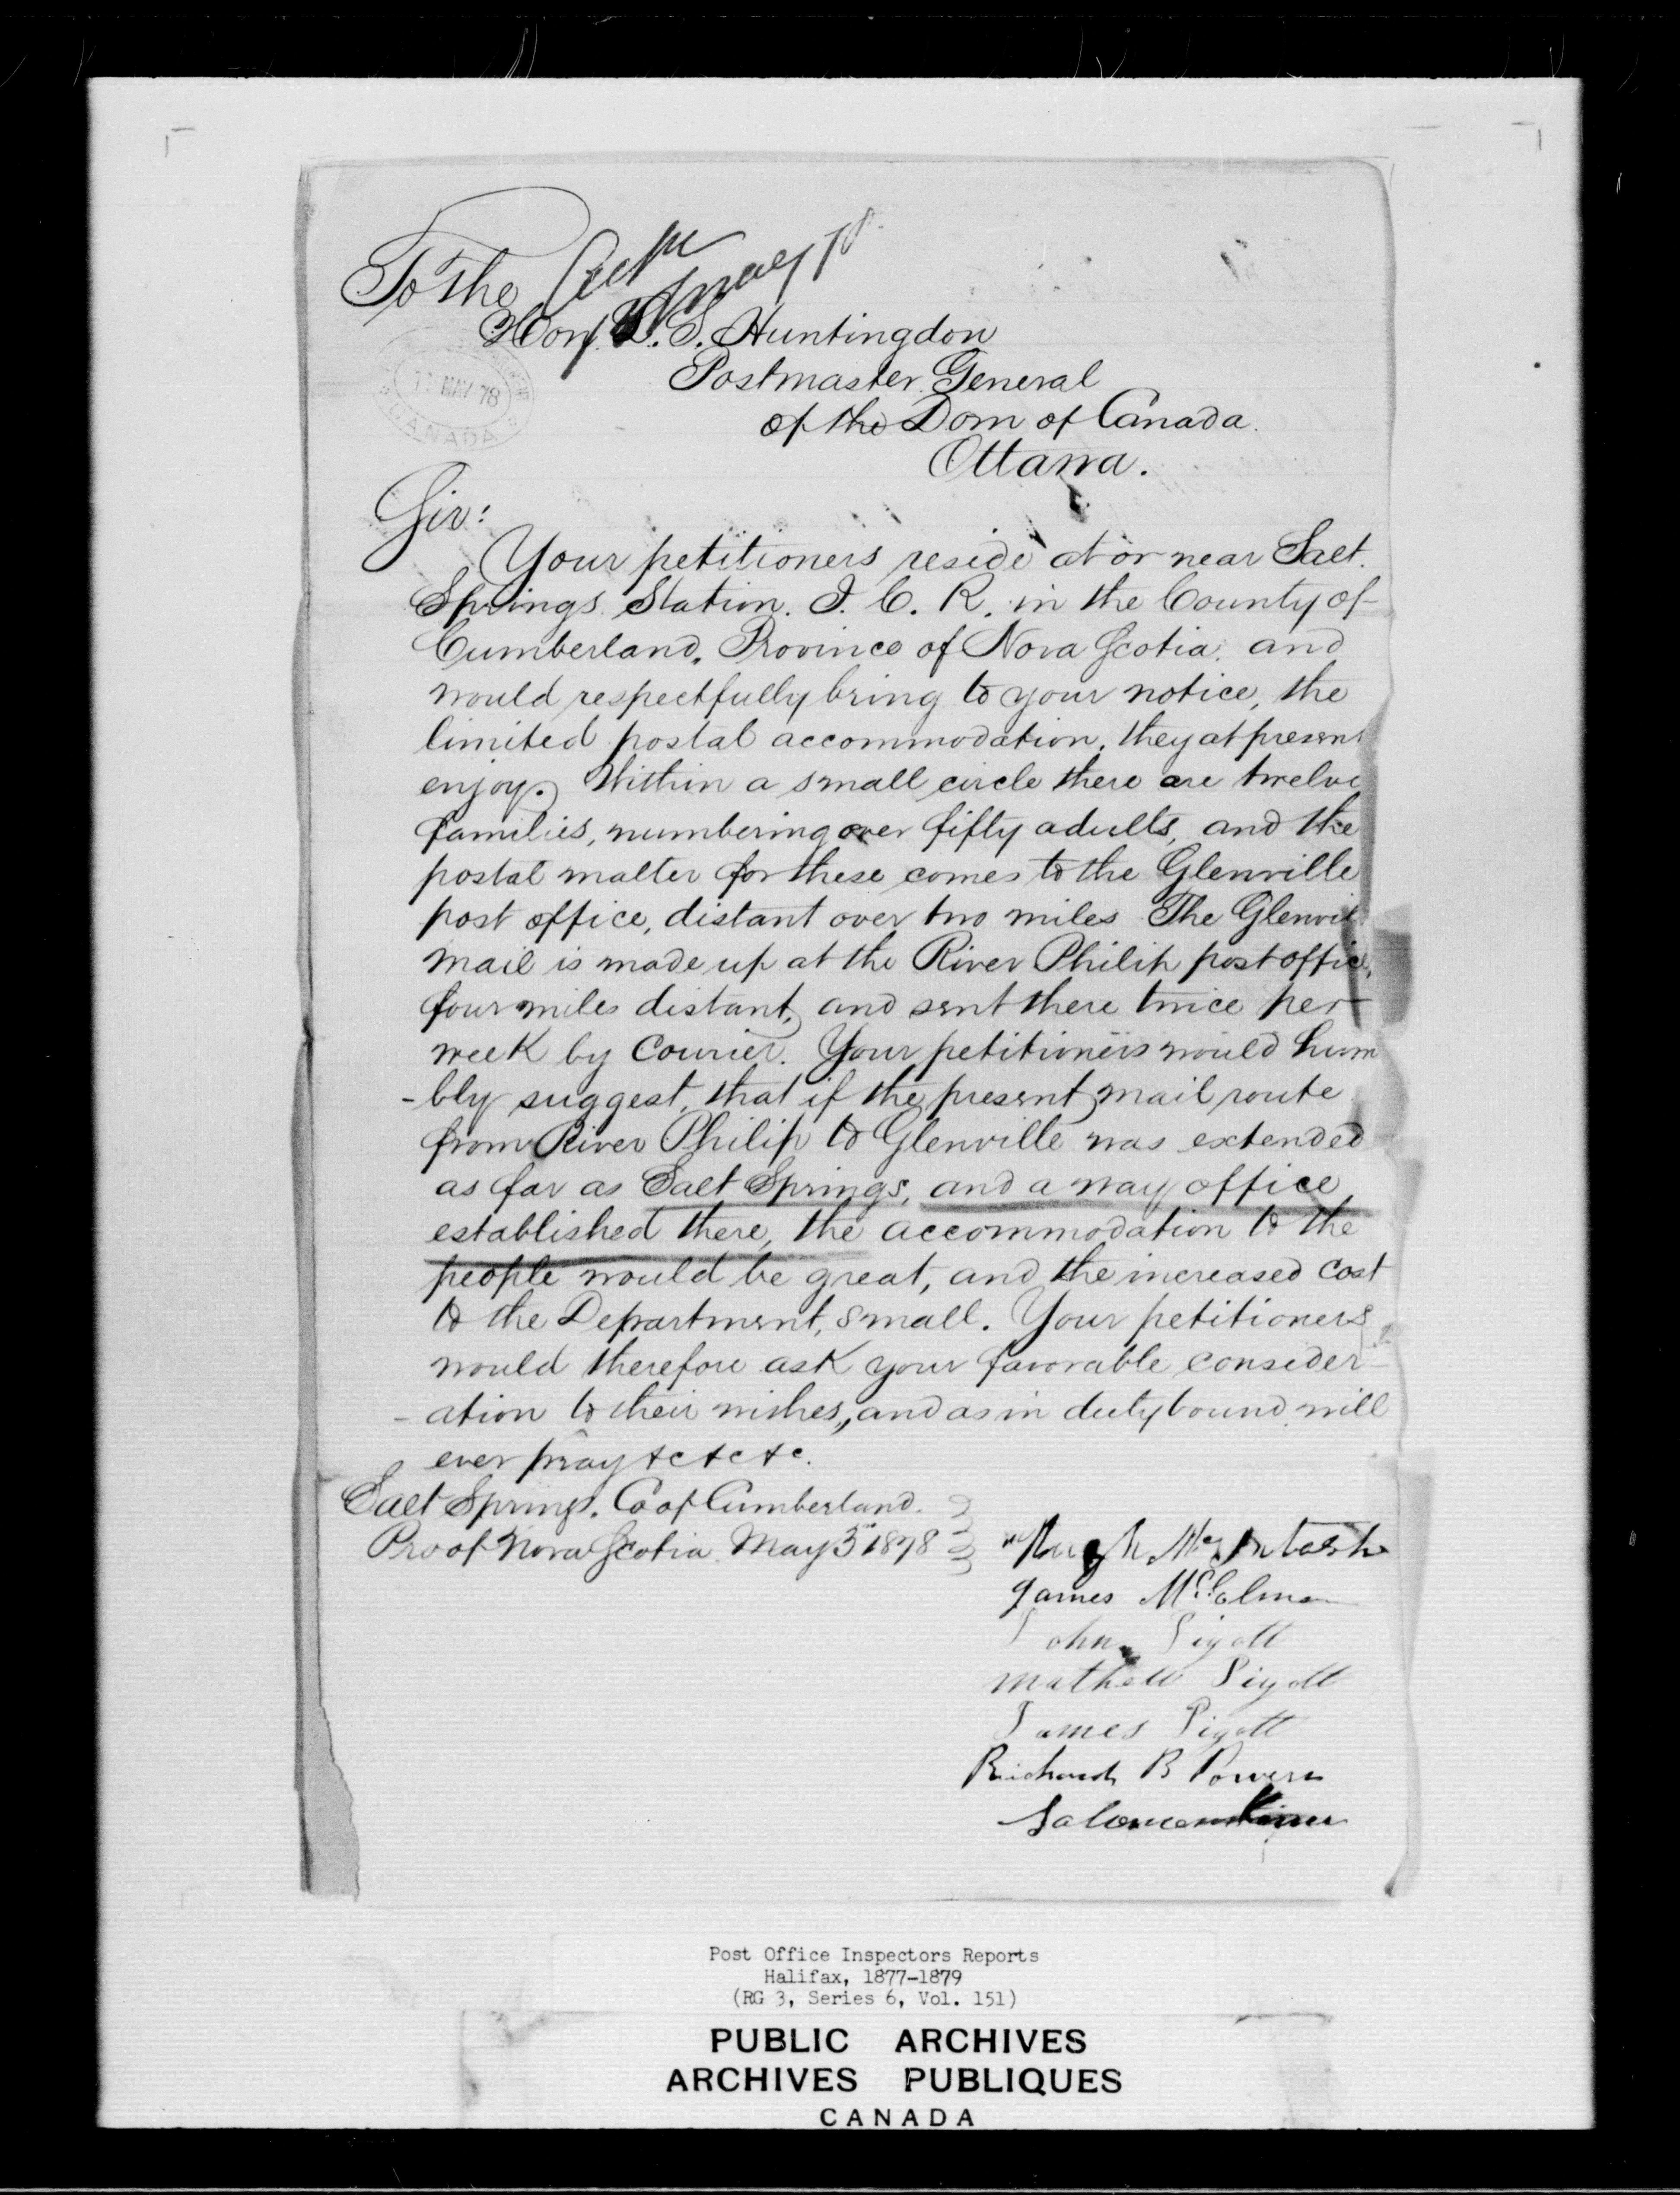 To the
Hon. L. S. Huntingdon
Postmaster General
of the Dom of Canada.
Ottawa.
MAY 78
CANADA
Sir:
Your petitioners reside at or near Salt
Springs Station. I. C. R. in the County of
Cumberland, Province of Nova Scotia, and
would respectfully bring to your notice, the
limited postal accommodation, they at present
enjoy. Within a small circle there are twelve
families, numbering over fifty adults, and the
postal matter for these comes to the Glenville
post office, distant over two miles. The Glenvil
mail is made up at the River Philip post office,
four miles distant, and sent there twice per
week by Courier. Your petitioners would hum
-bly suggest, that if the present mail route
from River Philip to Glenville was extended
as far as Salt Springs, and a way office
established there, the accommodation to the
people would be great, and the increased cost
to the Department, small. Your petitioners
would therefore ask your favorable consider-
-ation to their wishes, and as in duty bound will
ever pray &c &c &c.
Salt Springs. Co of Cumberland.
Pro of Nova Scotia. May 3rd 1878
Hugh McIntosh
James McColman
John Pigott
Mathew Pigott
James Pigott
Richard B Powers
Salomon
Post Office Inspectors Reports
Halifax, 1877-1879
(RG 3, Series 6, Vol. 151)
PUBLIC ARCHIVES
ARCHIVES PUBLIQUES
CANADA